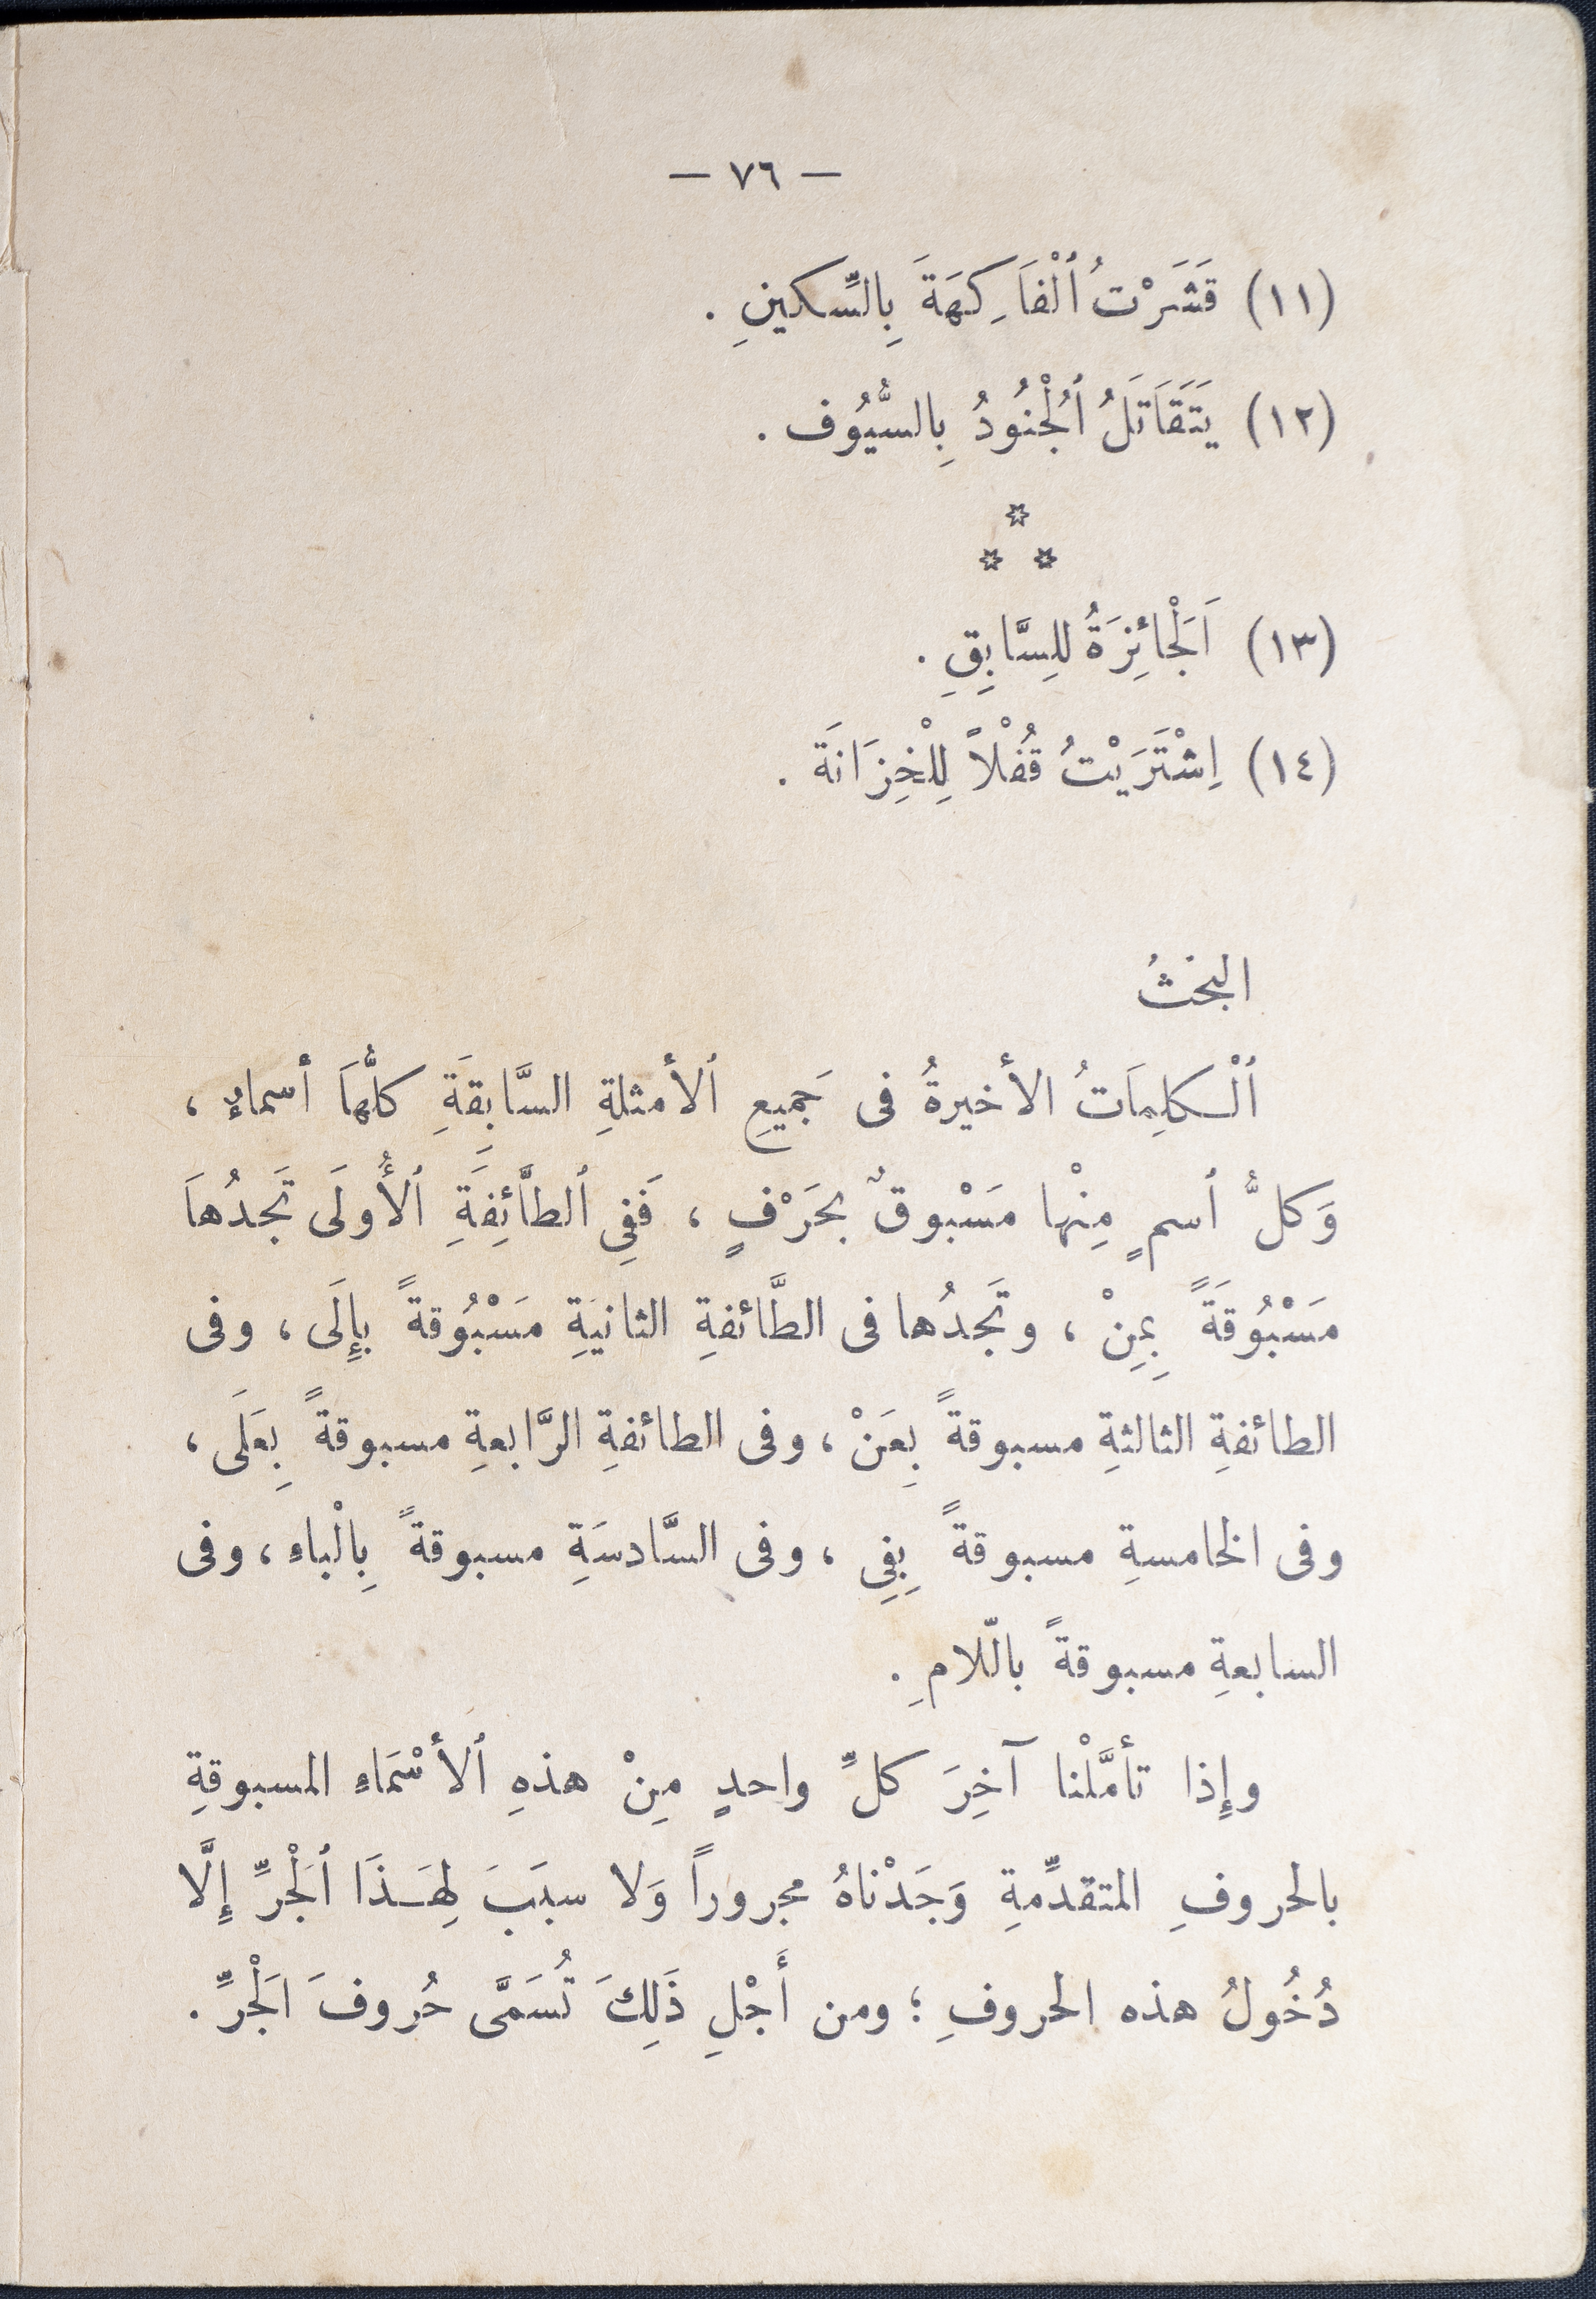 — ٧٦ —
(١١) قَشَرْتُ ٱلْفَاكِهَةَ بِالسِّكينِ .
(١٢) يَتَقَاتَلُ ٱلْجُنُودُ بِالسُّيُوف .
*
* *
(١٣) اَلْجَائِزَةُ للِسَّابِقِ .
(١٤) اِشْتَرَيْتُ قُفْلاً لِلْخِزَانَة .
البحثُ
ٱلْكلِمَاتُ الأخيرةُ فى جَميعِ ٱلأمثلةِ السَّابِقَةِ كلُّهَا أسماءٌ ،
وَكلُّ ٱسمٍ مِنْها مَسْبوقٌ بحَرْفٍ ، فَفِي ٱلطَّائِفَةِ ٱلأُولَى تَجدُهَا
مَسْبُوقَةً بِمِنْ ، وتَجدُها فى الطَّائفةِ الثانيَةِ مَسْبُوقةً بإِلَى ، وفى
الطائفةِ الثالثةِ مسبوقةً بِعَنْ ، وفى الطائفةِ الرَّابعةِ مسبوقةً بِعَلَى ،
وفى الخامسةِ مسبوقةً بِفِي ، وفى السَّادسَةِ مسبوقةً بِالْباءِ ، وفى
السابعةِ مسبوقةً بالّلامِ .
وإِذا تأمَّلْنا آخِرَ كلِّ واحدٍ مِنْ هذهِ ٱلأسْمَاءِ المسبوقةِ
بالحروفِ المتقدِّمةِ وَجَدْناهُ مجروراً وَلا سبَبَ لِهَـذَا ٱلْجَرِّ إِلَّا
دُخُولُ هذه الحروفِ ؛ ومن أَجْلِ ذَلِكَ تُسَمَّى حُروفَ اَلْجَرِّ .